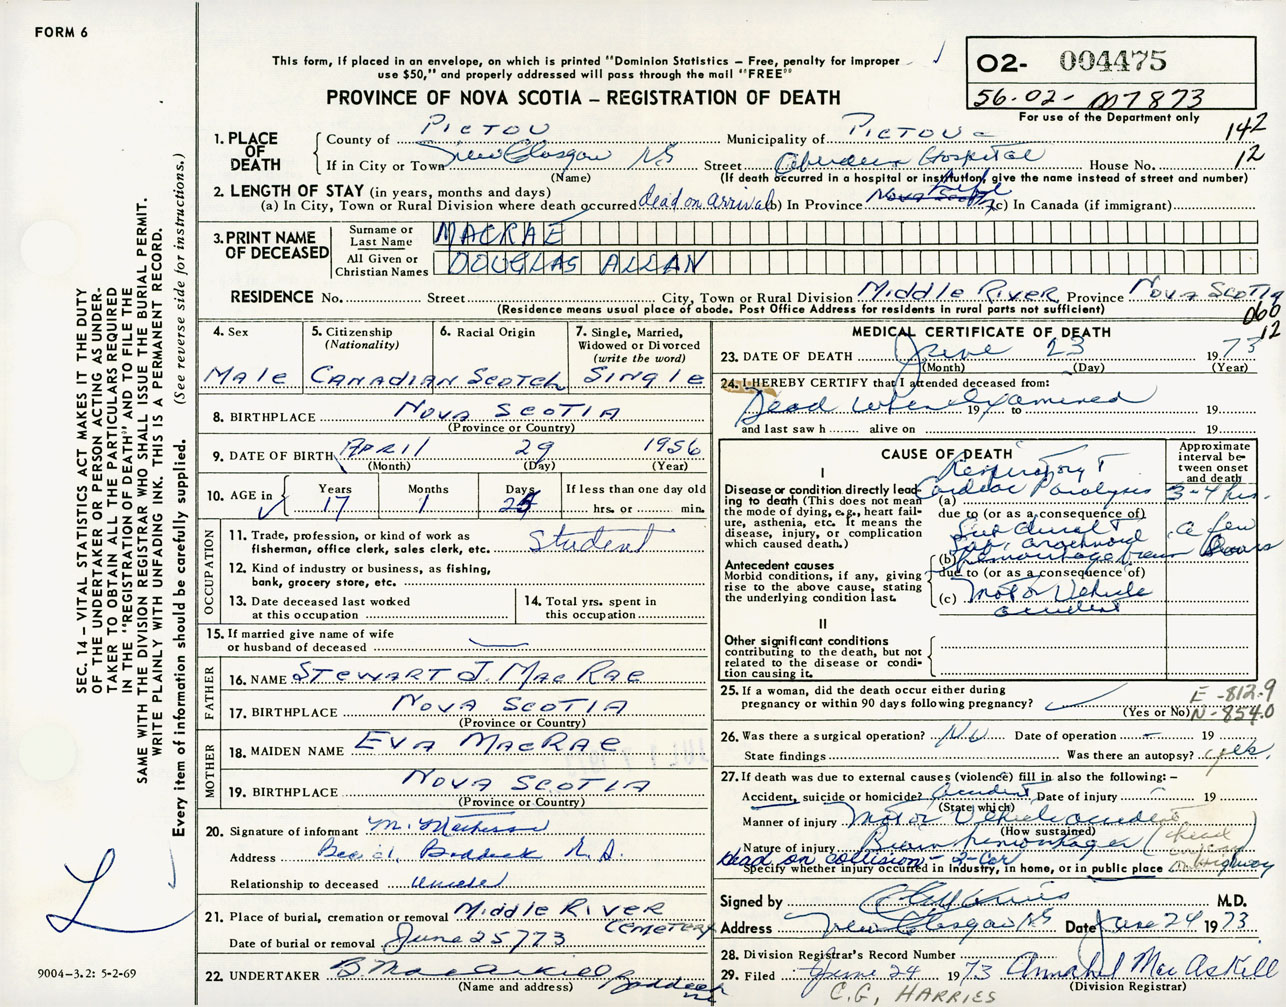 FORM 6
This form, if placed in an envelope, on which is printed "Dominion Statistics – Free, penalty for improper
use $50," and properly addressed will pass through the mail "FREE"
PROVINCE OF NOVA SCOTIA – REGISTRATION OF DEATH
02- 004475
56-02- M7873
For use of the Department only
142
12
1. PLACE OF DEATH
County of PICTOU Municipality of PICTOU
If in City or Town New Glasgow NS Street Aberdeen Hospital House No.
(Name) (If death occurred in a hospital or institution, give the name instead of street and number)
2. LENGTH OF STAY (in years, months and days)
(a) In City, Town or Rural Division where death occurred dead on arrival (b) In Province Nova Scotia life (c) In Canada (if immigrant)
3. PRINT NAME OF DECEASED
Surname or Last Name MACRAE
All Given or Christian Names DOUGLAS ALLAN
RESIDENCE No. Street City, Town or Rural Division Middle River Province Nova Scotia
(Residence means usual place of abode. Post Office Address for residents in rural parts not sufficient)
060
12
4. Sex
Male
5. Citizenship
(Nationality)
Canadian
6. Racial Origin
Scotch
7. Single, Married,
Widowed or Divorced
(write the word)
Single
8. BIRTHPLACE Nova Scotia
(Province or Country)
9. DATE OF BIRTH April 29 1956
(Month) (Day) (Year)
10. AGE in
Years Months Days If less than one day old
17 1 hrs. or min.
OCCUPATION
11. Trade, profession, or kind of work as
fisherman, office clerk, sales clerk, etc. Student
12. Kind of industry or business, as fishing,
bank, grocery store, etc.
13. Date deceased last worked
at this occupation
14. Total yrs. spent in
this occupation
15. If married give name of wife
or husband of deceased —
FATHER
16. NAME Stewart J. MacRae
17. BIRTHPLACE Nova Scotia
(Province or Country)
MOTHER
18. MAIDEN NAME Eva MacRae
19. BIRTHPLACE Nova Scotia
(Province or Country)
20. Signature of informant M. Matheson
Address Baddeck N.S.
Relationship to deceased Uncle
21. Place of burial, cremation or removal Middle River
Cemetery
Date of burial or removal June 25 773
22. UNDERTAKER B MacAskill Baddeck
(Name and address)
MEDICAL CERTIFICATE OF DEATH
23. DATE OF DEATH June 23 1973
(Month) (Day) (Year)
24. I HEREBY CERTIFY that I attended deceased from:
Dead when examined 19 to 19
and last saw h alive on 19
CAUSE OF DEATH
Approximate
interval be-
tween onset
and death
I
Disease or condition directly lead-
ing to death (This does not mean
the mode of dying, e.g., heart fail-
ure, asthenia, etc. It means the
disease, injury, or complication
which caused death.)
Respiratory +
(a) Cardiac Paralysis 3-4 hrs.
due to (or as a consequence of)
Antecedent causes
Morbid conditions, if any, giving
rise to the above cause, stating
the underlying condition last.
Sub dural +
Sub. arachnoid
(b) hemorrhage from
a few hours
due to (or as a consequence of)
(c) Motor Vehicle
accident
II
Other significant conditions
contributing to the death, but not
related to the disease or condi-
tion causing it.
25. If a woman, did the death occur either during
pregnancy or within 90 days following pregnancy?
(Yes or No)
E -812.9
N -854.0
26. Was there a surgical operation? No Date of operation - 19
State findings Was there an autopsy? yes.
27. If death was due to external causes (violence) fill in also the following: –
Accident, suicide or homicide? Accident Date of injury - 19
(State which)
Manner of injury Motor Vehicle accident
(How sustained)
Nature of injury Brain hemorrhage (head
Head on collision - 2-Car
on Highway
Specify whether injury occurred in industry, in home, or in public place
Signed by M.D.
Address New Glasgow NS Date June 24 1973
28. Division Registrar's Record Number
29. Filed June 24 1973 Annabel MacAskill
(Division Registrar)
C.G. HARRIES
SEC. 14 – VITAL STATISTICS ACT MAKES IT THE DUTY
OF THE UNDERTAKER OR PERSON ACTING AS UNDER-
TAKER TO OBTAIN ALL THE PARTICULARS REQUIRED
IN THE "REGISTRATION OF DEATH" AND TO FILE THE
SAME WITH THE DIVISION REGISTRAR WHO SHALL ISSUE THE BURIAL PERMIT.
WRITE PLAINLY WITH UNFADING INK. THIS IS A PERMANENT RECORD.
Every item of information should be carefully supplied. (See reverse side for instructions.)
9004-3.2: 5-2-69